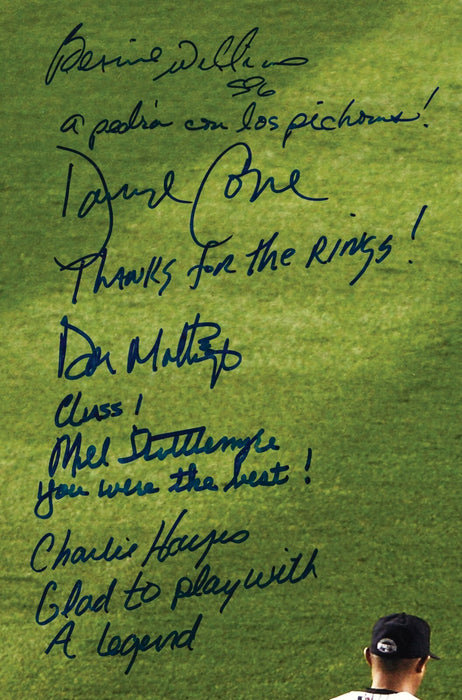 Bernie Williams
a pedrá con los pichones!
David Cone
THANKS for the RINGS!
Don Mattingly
Class!
Mel Stottlemyre
you were the best!
Charlie Hayes
Glad to play with
A Legend